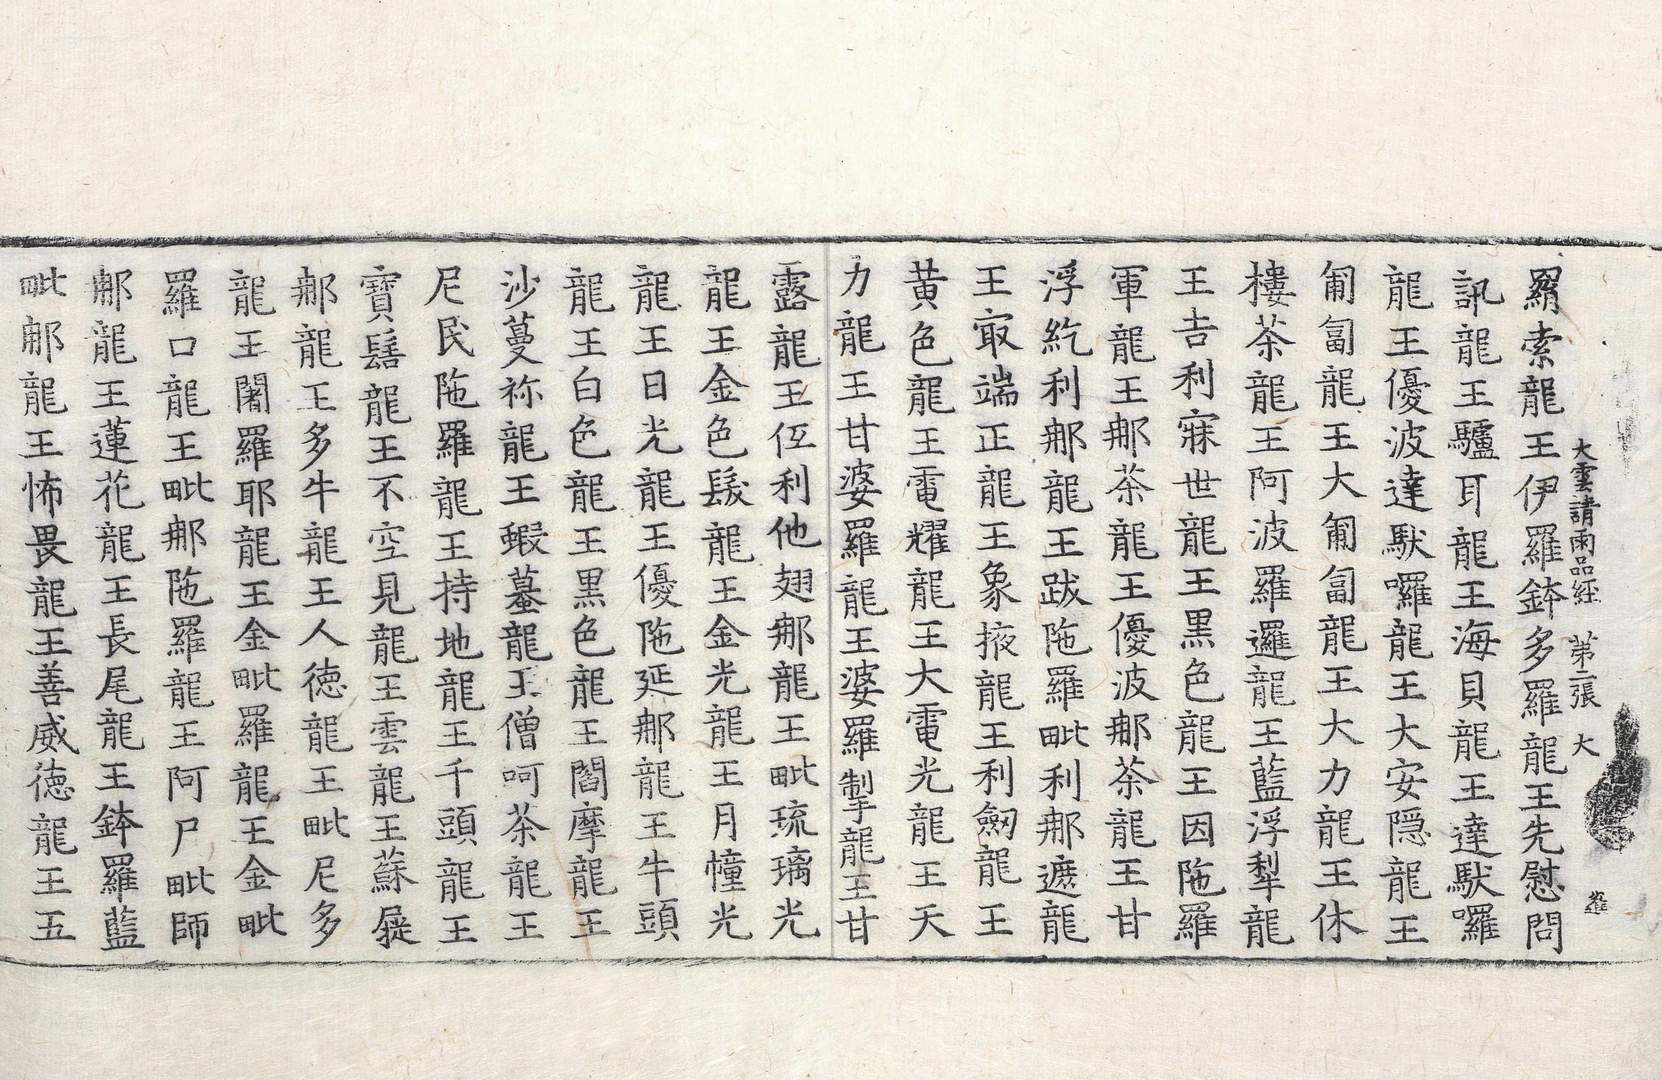 大雲請雨品經　第二張　大
羂索龍王伊羅鉢多羅龍王先慰問
訊龍王驢耳龍王海貝龍王達馱囉
龍王優波達馱囉龍王大安隱龍王
匍匐龍王大匍匐龍王大力龍王休
樓茶龍王阿波羅邏龍王藍浮犁龍
王吉利寐世龍王黑色龍王因陁羅
軍龍王那茶龍王優波那茶龍王甘
浮紇利那龍王跋陁羅毗利那遮龍
王㝡端正龍王象掖龍王利劒龍王
黃色龍王電耀龍王大電光龍王天
力龍王甘婆羅龍王婆羅掣龍王甘
露龍王伍利他翅那龍王毗琉璃光
龍王金色髮龍王金光龍王月幢光
龍王日光龍王優陁延那龍王牛頭
龍王白色龍王黑色龍王閻摩龍王
沙蔓祢龍王蝦蟇龍王僧呵茶龍王
尼民陁羅龍王持地龍王千頭龍王
寶髻龍王不空見龍王雲龍王蘇屣
那龍王多牛龍王人德龍王毗尼多
龍王闍羅耶龍王金毗羅龍王金毗
羅口龍王毗那陁羅龍王阿尸毗師
那龍王蓮花龍王長尾龍王鉢羅藍
毗那龍王怖畏龍王善威德龍王五